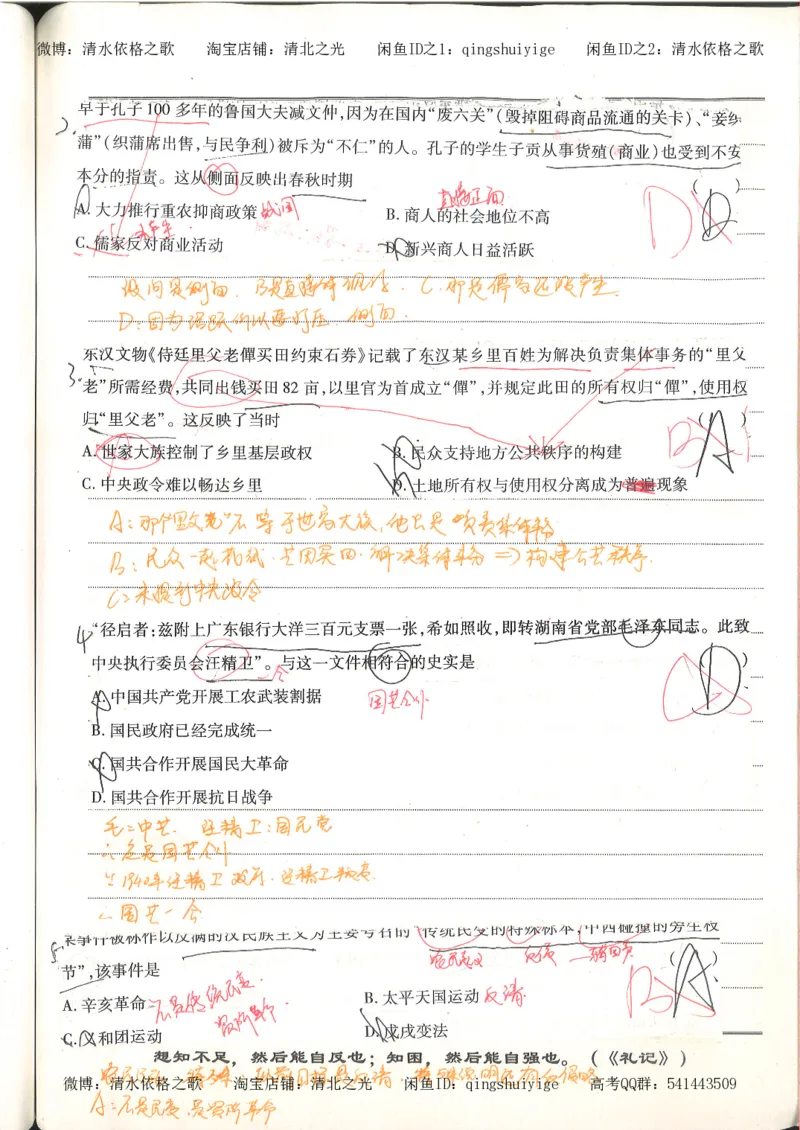 微博：清水依格之歌 淘宝店铺：清北之光 闲鱼ID之1：qingshuiyige 闲鱼ID之2：清水依格之歌
早于孔子100多年的鲁国大夫臧文仲，因为在国内“废六关”（毁掉阻碍商品流通的关卡）、“妾织
2.
蒲”（织蒲席出售，与民争利）被斥为“不仁”的人。孔子的学生子贡从事货殖（商业）也受到不安
本分的指责。这从侧面反映出春秋时期 （ ）
D D
A. 大力推行重农抑商政策 战国 B. 商人的社会地位不高
C. 儒家反对商业活动 D. 新兴商人日益活跃
设问是侧面
东汉文物《侍廷里父老僤买田约束石券》记载了东汉某乡里百姓为解决负责集体事务的“里父
3.
老”所需经费，共同出钱买田82亩，以里官为首成立“僤”，并规定此田的所有权归“僤”，使用权
归“里父老”。这反映了当时 （ ）
B A
A. 世家大族控制了乡里基层政权 B. 民众支持地方公共秩序的构建
C. 中央政令难以畅达乡里 D. 土地所有权与使用权分离成为普遍现象
C：未提到中央政令
4 “径启者：兹附上广东银行大洋三百元支票一张，希如照收，即转湖南省党部毛泽东同志。此致
中央执行委员会汪精卫”。与这一文件相符合的史实是 （ ）
C D
一合
A. 中国共产党开展工农武装割据 国共合作
B. 国民政府已经完成统一
C. 国共合作开展国民大革命
D. 国共合作开展抗日战争
毛：中共 汪精卫：国民党
∴应是国共合作
∴国共一合
某事件被称作以反满的汉民族主义为主要号召的“传统民变的特殊标本，中西碰撞的旁生枝
5.
节”，该事件是 （ ）
B A
A. 辛亥革命 不是传统民变 B. 太平天国运动 反清
C. 义和团运动 D. 戊戌变法
想知不足，然后能自反也；知困，然后能自强也。（《礼记》）
微博：清水依格之歌 淘宝店铺：清北之光 闲鱼ID之2：qingshuiyige 高考QQ群：541443509
A：不是民变，是资产阶级革命